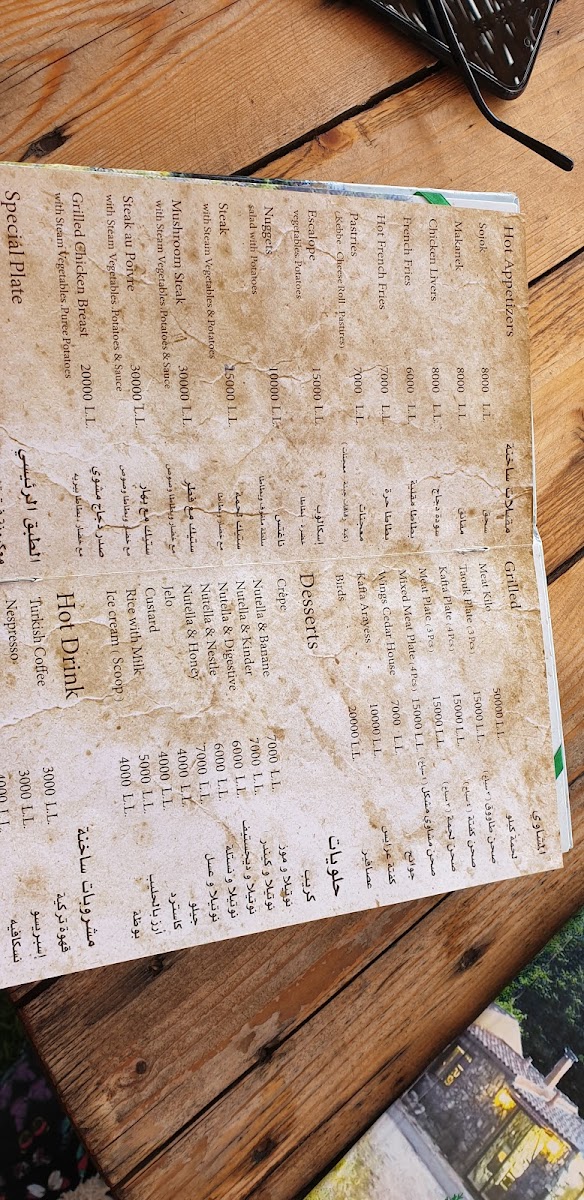 Hot Appetizers مقبلات ساخنة
Sojok 8000 L.L. سجق
Makanek 8000 L.L. مقانق
Chicken Livers 8000 L.L. سودة دجاج
French Fries 6000 L.L. بطاطا مقلية
Hot French Fries 7000 L.L. بطاطا حرة
Pastries 7000 L.L. معجنات
(Kebbe, Cheese Roll, Pastires)
Escalope 15000 L.L. إسكالوب
vegetables, Potatoes
Nuggets 10000 L.L. ناغتس
salad with Potatoes
Steak L.L. ستيك لحمة
with Steam Vegetables & Potatoes
Mushroom Steak 30000 L.L. ستيك مع فطر
with Steam Vegetables, Potatoes & Sauce
Steak au Poivre 30000 L.L. ستيك مع بهار
with Steam Vegetables, Potatoes & Sauce
Grilled Chicken Breast 20000 L.L. صدر دجاج مشوي
with Steam Vegetables, Puree Potatoes
Special Plate الطبق الرئيسي
Grilled المشاوي
Meat Kilo 50000 L.L. لحمة كيلو
Taouk Plate (3 Pcs) 15000 L.L. صحن طاووق
Kafta Plate (4 Pcs) 15000 L.L. صحن كفتة
Meat Plate (3 Pcs) 15000 L.L. صحن لحمة
Mixed Meat Plate (4 Pcs) 15000 L.L. صحن مشاوي مشكل
Wings Cedar House 7000 L.L. جوانح
Kafta Arayess 10000 L.L. كفتة عرايس
Birds 20000 L.L. عصافير
Desserts حلويات
Crêpe كريب
Nutella & Banane 7000 L.L. نوتيلا و موز
Nutella & Kinder 7000 L.L. نوتيلا و كيندر
Nutella & Digestive 6000 L.L. نوتيلا و ديجستيف
Nutella & Nestle 6000 L.L. نوتيلا و نستلة
Nutella & Honey 7000 L.L. نوتيلا و عسل
Jelo 4000 L.L. جيلو
Custard 4000 L.L. كاسترد
Rice with Milk 5000 L.L. أرز بالحليب
Ice cream (Scoop) 4000 L.L. بوظة
Hot Drink مشروبات ساخنة
Turkish Coffee 3000 L.L. قهوة تركية
Nespresso 3000 L.L. إسبريسو
4000 L.L. نسكافيه